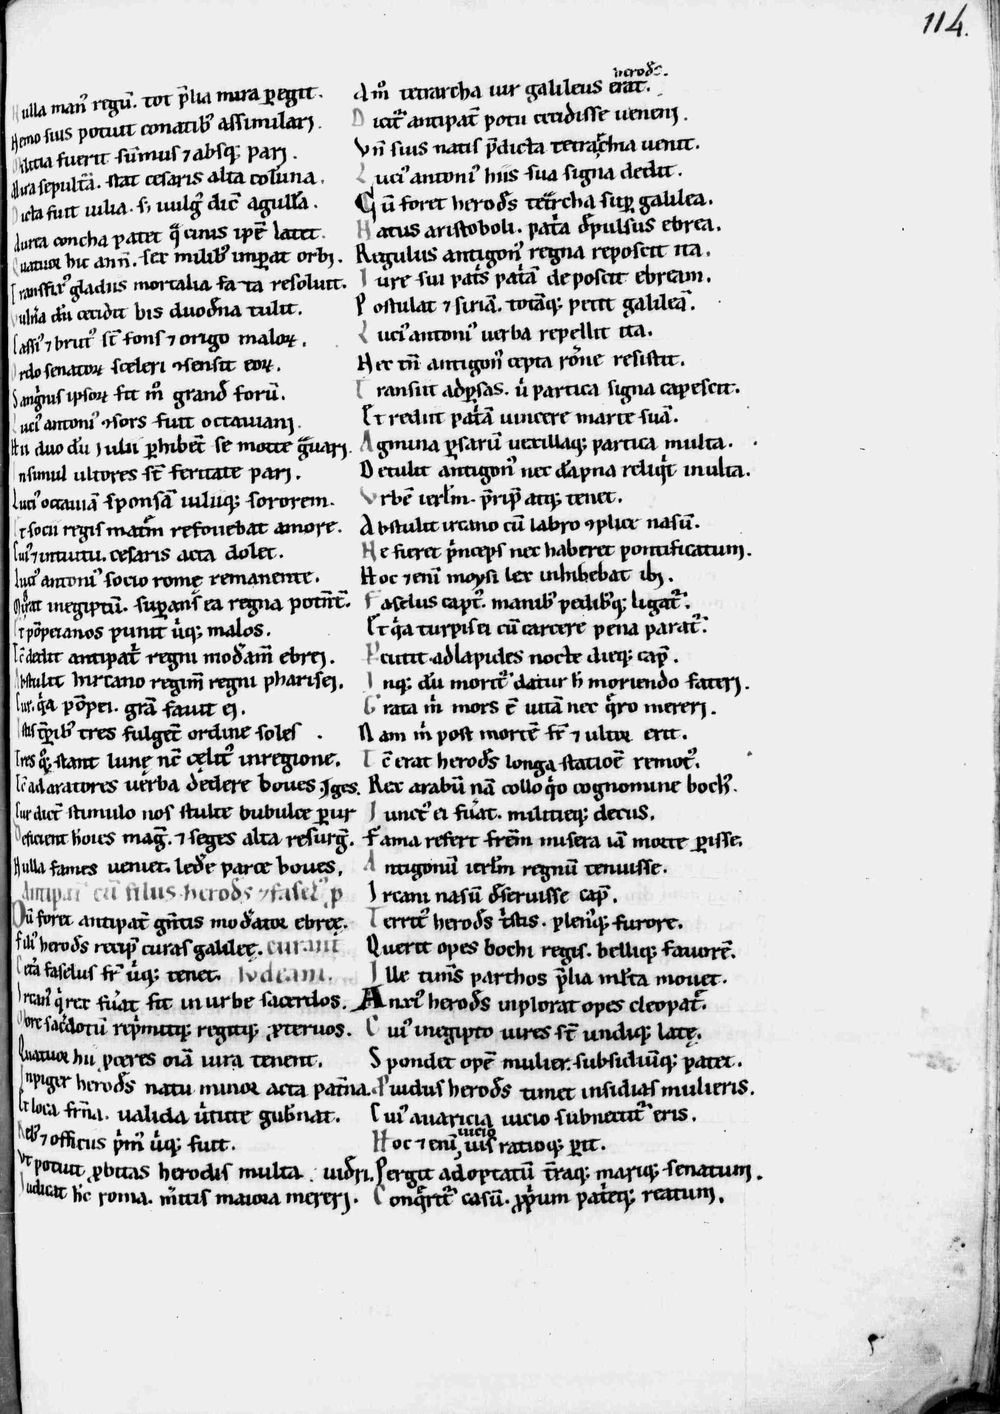 114.
Nulla man᷒ regū. tot p̄lia mira ꝑegit.
Nemo suis potuit conatib᷒ assimilari.
Militia fuerit sūmus ⁊ absq; pari.
Mira sepultā. stat cesaris alta colūna.
Dicta fuit iulia. s; uulg᷒ dic̄ agulia.
Aurea concha patet q̄ cinis ip̄e latet.
Quatuor hic ann̄. sex milib᷒ imꝑat orbi.
Transfix᷒ gladiis mortalia fata resoluit.
Vulnā dū cecidit bis duodēna tulit.
Cassi᷒ ⁊ brut᷒ s̄t fons ⁊ origo maloꝝ.
Ordo senatoꝝ sceleri ꝯsensit eoꝝ.
Sangͥnis ipsoꝝ fit m͂ grand̄ forū.
Luci᷒ antoni᷒ ꝯsors fuit octauiani.
Hii duo dū iulii ꝑhibēt se morte gͣuari.
Insimul ultores s̄t feritate pari.
Luci᷒ octauiā sponsā iuliiq; sororem.
Et socii regis matrē refouebat amore.
Cui᷒ ⁊ intuitu. cesaris acta dolet.
Luci᷒ antoni᷒ socio rome remanente.
inegiptū. suꝑans ea regna potn̄t.
Et pōpeianos punit u̓q; malos.
Tc̄ dedit antipat̄ regni modͣam̄ ebrei.
Abstulit hircano regim̄ regni pharisei.
Cur. qͥa pōpei. grā fauit ei.
tres fulgēt ordine soles.
Tres q͛; stant lunę nc̄ cęlit᷒ inregione.
Tc̄ ad aratores uerba dędere boues.
Cur dic̄t stimulo nos stulte bubulce ꝑurges
Deficient hoīes mag̓. ⁊ seges alta resurg̓.
Nulla fames ueniet. lędͤe parce boues.
Antipat̄ cū filiis herodͤs ⁊ fasel᷒ p̄
Dū foret antipat̄ gn̄tis modͣator ebręę.
Fili᷒ herodͤs recip̄ curas galilęę. curant
Cetͣa faselus fr̄ u̓q; tenet. Iudeam.
Ircan᷒ qͥ rex fuͣat fit in urbe sacerdos.
Iore sacͣdotū rep̄mitq; regitq; ꝓteruos.
Quatuor hii ꝓceres oīa iura tenent.
Inpiger herodͤs natu minor acta patn̄a.
Et loca frn̄a. ualida uͥtute gub̓nat.
Reb᷒ ⁊ officiis pͥm᷒ u̓q; fuit.
Vt potuit ꝓbitas herodis multa uidͤri.
Iudicat hͨ roma. mͥtis maiora mereri.
Am͂ tetrarcha uir galileus erat. herodͤs.
Dicit᷒ antipat̄ potu cecidisse ueneni.
Vn̄ suis natis p̄dicta tetracͣhia uenit.
Luci᷒ antoni᷒ hiis sua signa dedit.
Cū foret herodͤs tetͣrcha suꝑ galilea.
Natus aristoboli. patͥa dͤpulsus ebrea.
Regulus antigon᷒ regna reposcit ita.
Iure sui patͥs patͥā deposcit ebream.
Postulat ⁊ siriā. totāq; petit galileā.
Luci᷒ antoni᷒ uerba repellit ita.
Hec tn̄ antigon᷒ cepta rōne resistit.
Transiit adꝑsas. u̓ partica signa capescit.
Et rediit patͥā uincere marte suā.
Agmina ꝑsarū uexillaq; partica multa.
Detulit antigon᷒ nec dāpna reliqͥt inulta.
Vrbē ierl̄m. p̄ripit atq; tenet.
Abstulit ircano cū labro ꝯplice nasū.
Ne fieret pͥnceps nec haberet pontificatum.
Hoc ⁊enī moysi lex inhibebat ibi.
Faselus capt᷒. manib᷒ pedibq; ligat᷒.
Et qͥa turpis ei cū carcere pena parat᷒.
Pcutit ad lapides nocte dieq; cap̄.
Inq; dū morit᷒ datur h̄ moriendo fateri.
Grata m̓ mors ē uitā nec qͥro mereri.
Nam m̓ post mortē fr̄ ⁊ ultor erit.
Tc̄ erat herodͤs longa statiōe remot᷒.
Rex arabū nā colloqͥo cognomine boch᷒.
Iunct᷒ ei fuͣat. militieq; decus.
Fama refert fr̄em misera iā morte ꝑisse.
Antigonū ierl̄m regnū tenuisse.
Ircani nasū dͤseruisse cap̄.
Territ᷒ herodͤs tͥstis. plen᷒q; furore.
Querit opes bochi regis. belliq; fauorē.
Ille tim̄s parthos p̄lia ml̄ta mouet.
Anxi᷒ herodͤs inplorat opes cleopatͬ.
Cui᷒ inegipto uires s̄t undiq; latę.
Spondet opē mulier. subsidiūq; patet.
Prouidus herodͤs timet insidias mulieris.
Cui᷒ auaricia uicio subnectit᷒ eris.
Hoc ⁊enī uicio uis ratioq; ꝑit.
Pergit ad optatū tͣraq; mariq; senatum.
Conqͥrit᷒ casū. ꝓpͥum patͥeq; reatum.